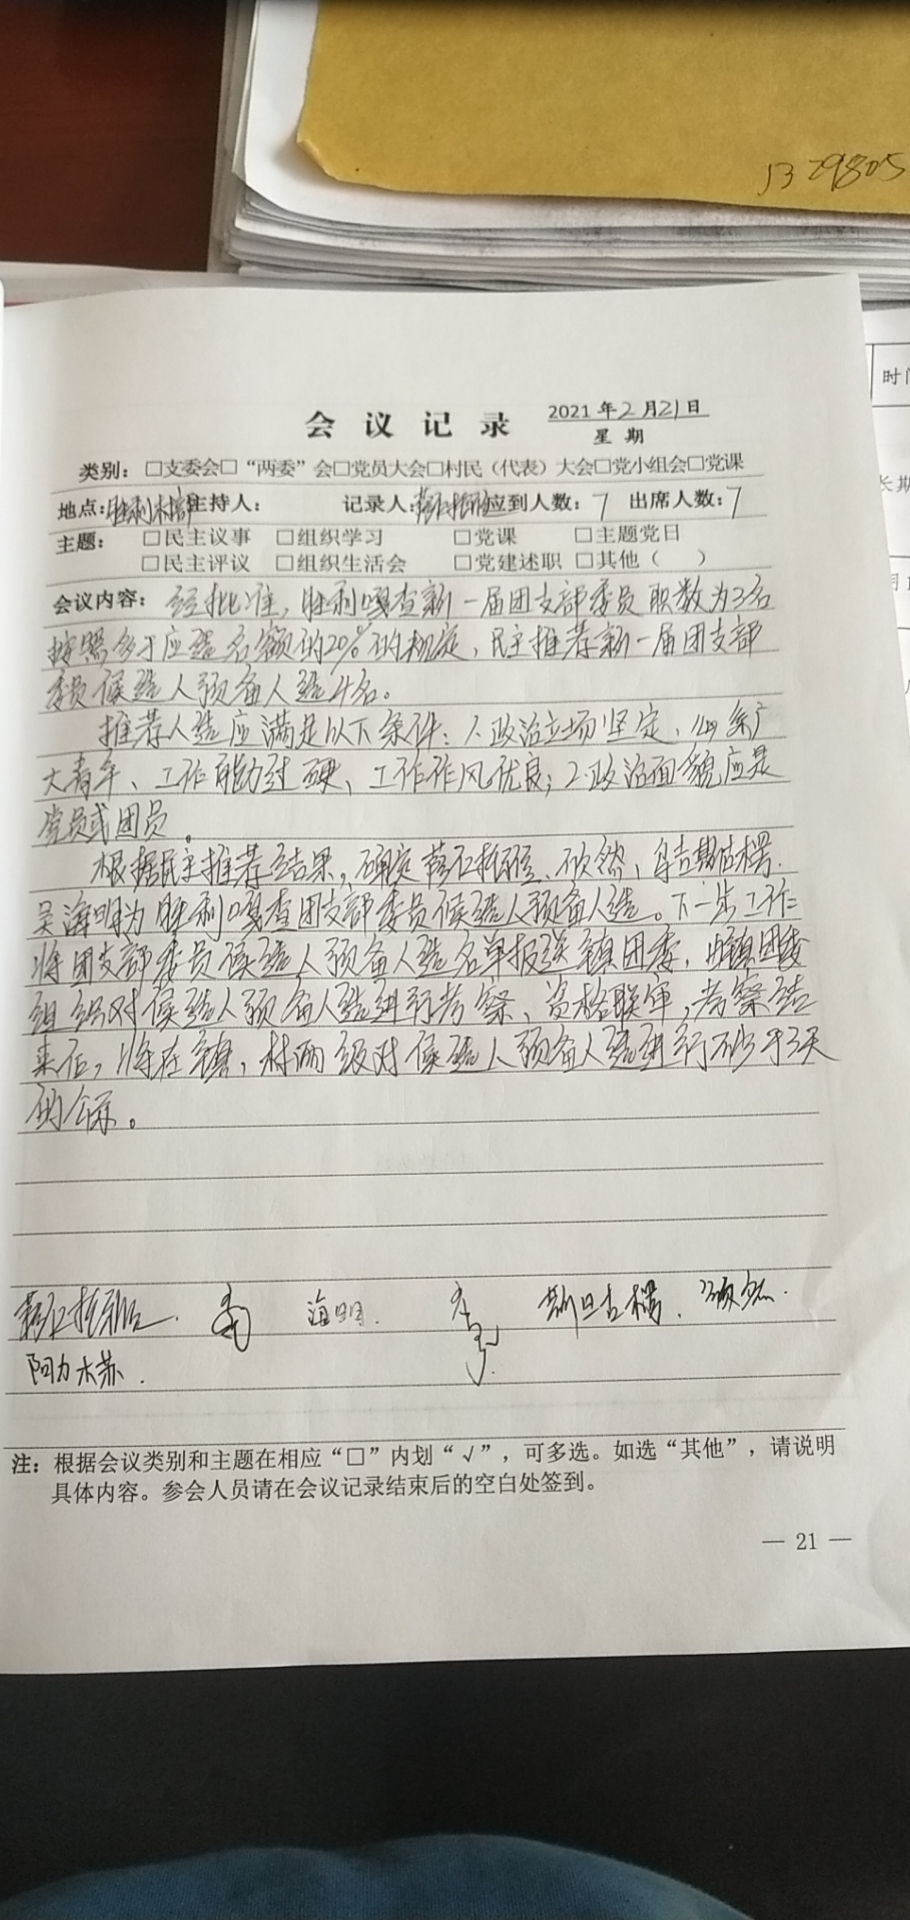 1329805
时间
长期
会议记录 2021年2月21日
星期
类别：□支委会□“两委”会□党员大会□村民（代表）大会□党小组会□党课
地点：胜利村部 主持人： 记录人： 应到人数：7 出席人数：7
主题：□民主议事 □组织学习 □党课 □主题党日
□民主评议 □组织生活会 □党建述职 □其他（ ）
会议内容：经批准，胜利嘎查新一届团支部委员职数为3名
按照多于应选名额的20%的规定，民主推荐新一届团支部
委员候选人预备人选4名。
推荐人选应满足以下条件：1.政治立场坚定、心系广
大青年、工作能力过硬、工作作风优良；2.政治面貌应是
党员或团员。
根据民主推荐结果，确定 欣然、
吴海明为胜利嘎查团支部委员候选人预备人选。下一步工作
将团支部委员候选人预备人选名单报送镇团委，由镇团委
组织对候选人预备人选进行考察、资格联审，考察结
束后，将在镇，村两级对候选人预备人选进行不少于3天
的公示。
海明. 斯日古楞.
阿力木苏.
注：根据会议类别和主题在相应“□”内划“√”，可多选。如选“其他”，请说明
具体内容。参会人员请在会议记录结束后的空白处签到。
— 21 —